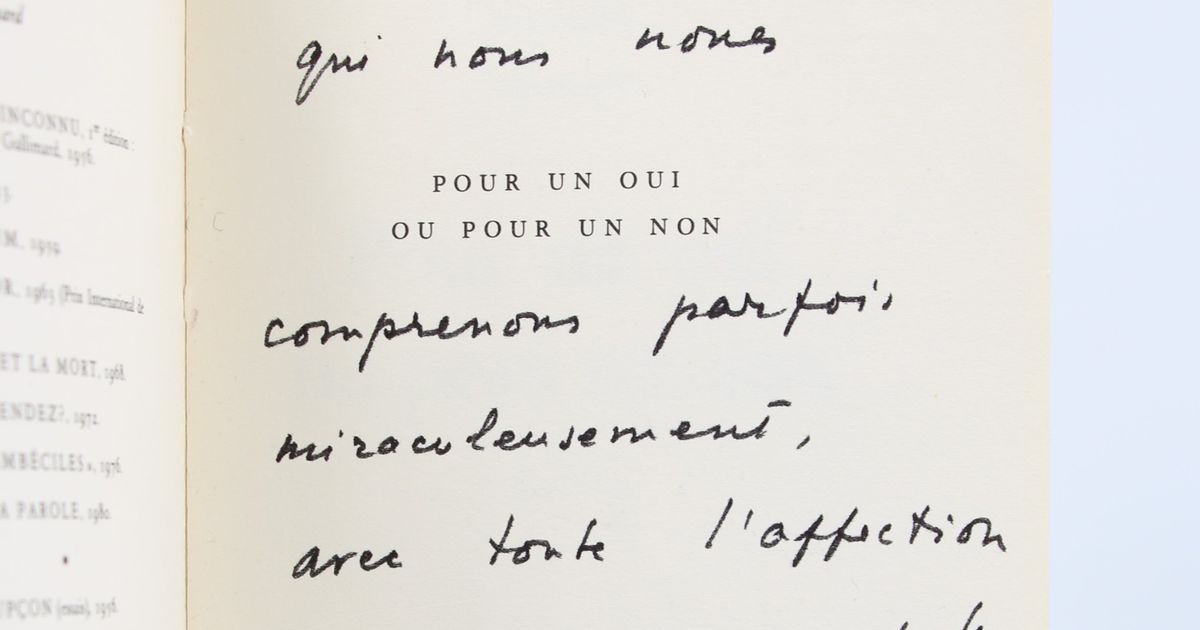 qui nous nous
POUR UN OUI
OU POUR UN NON
comprenons parfois
miraculeusement,
avec toute l'affection
INCONNU, 1re édition :
Gallimard, 1956.
M, 1959.
R, 1963 (Prix International de
ET LA MORT, 1968.
ENDEZ?, 1972.
MBÉCILES», 1976.
A PAROLE, 1980.
PÇON (essais), 1956.